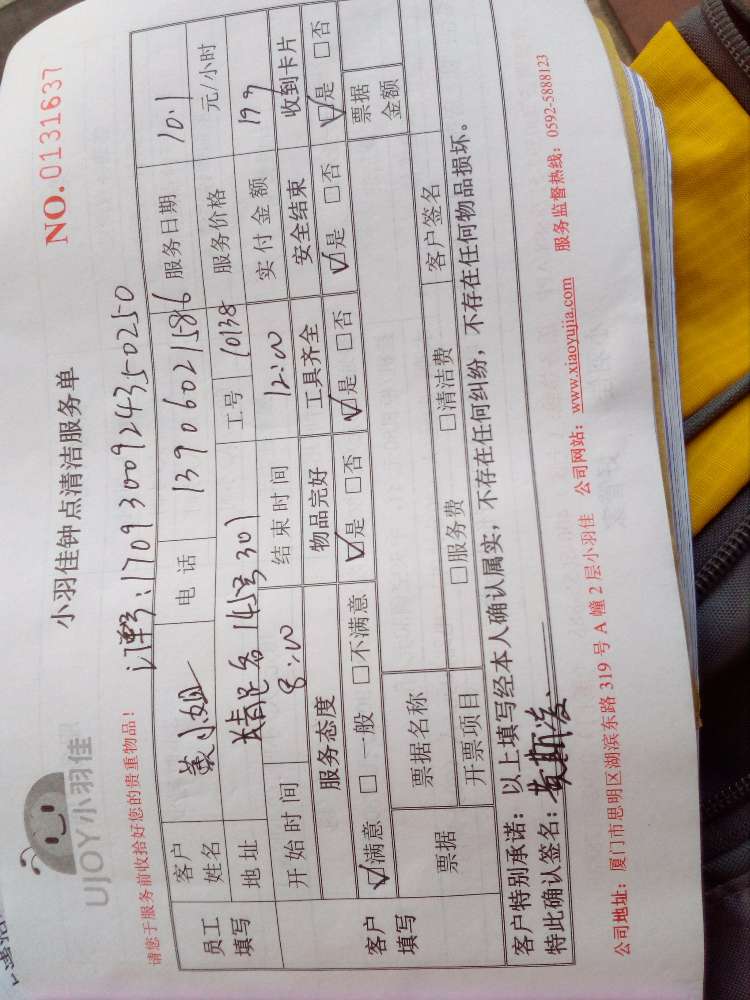 UJOY小羽佳
小羽佳钟点清洁服务单
NO.0131637
请您于服务前收拾好您的贵重物品!
订单号:170930092435-0250
员工填写
客户姓名 黄小姐 电话 13906021586 服务日期 10.1
地址 145号301 工号 10138 服务价格 元/小时
开始时间 8:00 结束时间 12:00 实付金额 199
客户填写
服务态度 物品完好 工具齐全 安全结束 收到卡片
☑满意 □一般 □不满意 ☑是 □否 ☑是 □否 ☑是 □否 ☑是 □否
票据 票据名称 票据金额
开票项目 □服务费 □清洁费 客户签名
客户特别承诺: 以上填写经本人确认属实,不存在任何纠纷,不存在任何物品损坏。
特此确认签名:
公司地址:厦门市思明区湖滨东路 319 号 A 幢 2 层小羽佳 公司网站:www.xiaoyujia.com 服务监督热线:0592-5888123